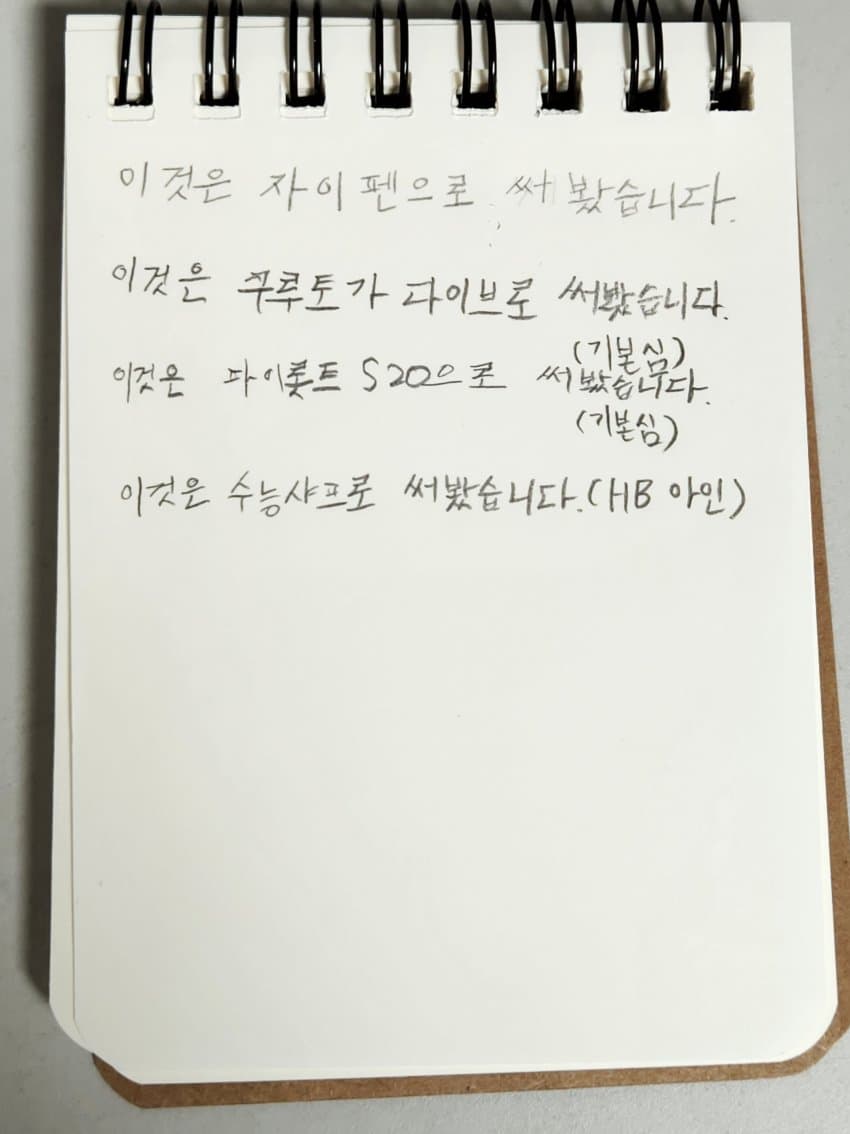 이것은 자이펜으로 써봤습니다.
이것은 쿠루토가 다이브로 써봤습니다.
(기본심)
이것은 파이롯트 S20으로 써봤습니다.
(기본심)
이것은 수능샤프로 써봤습니다.(HB 아인)